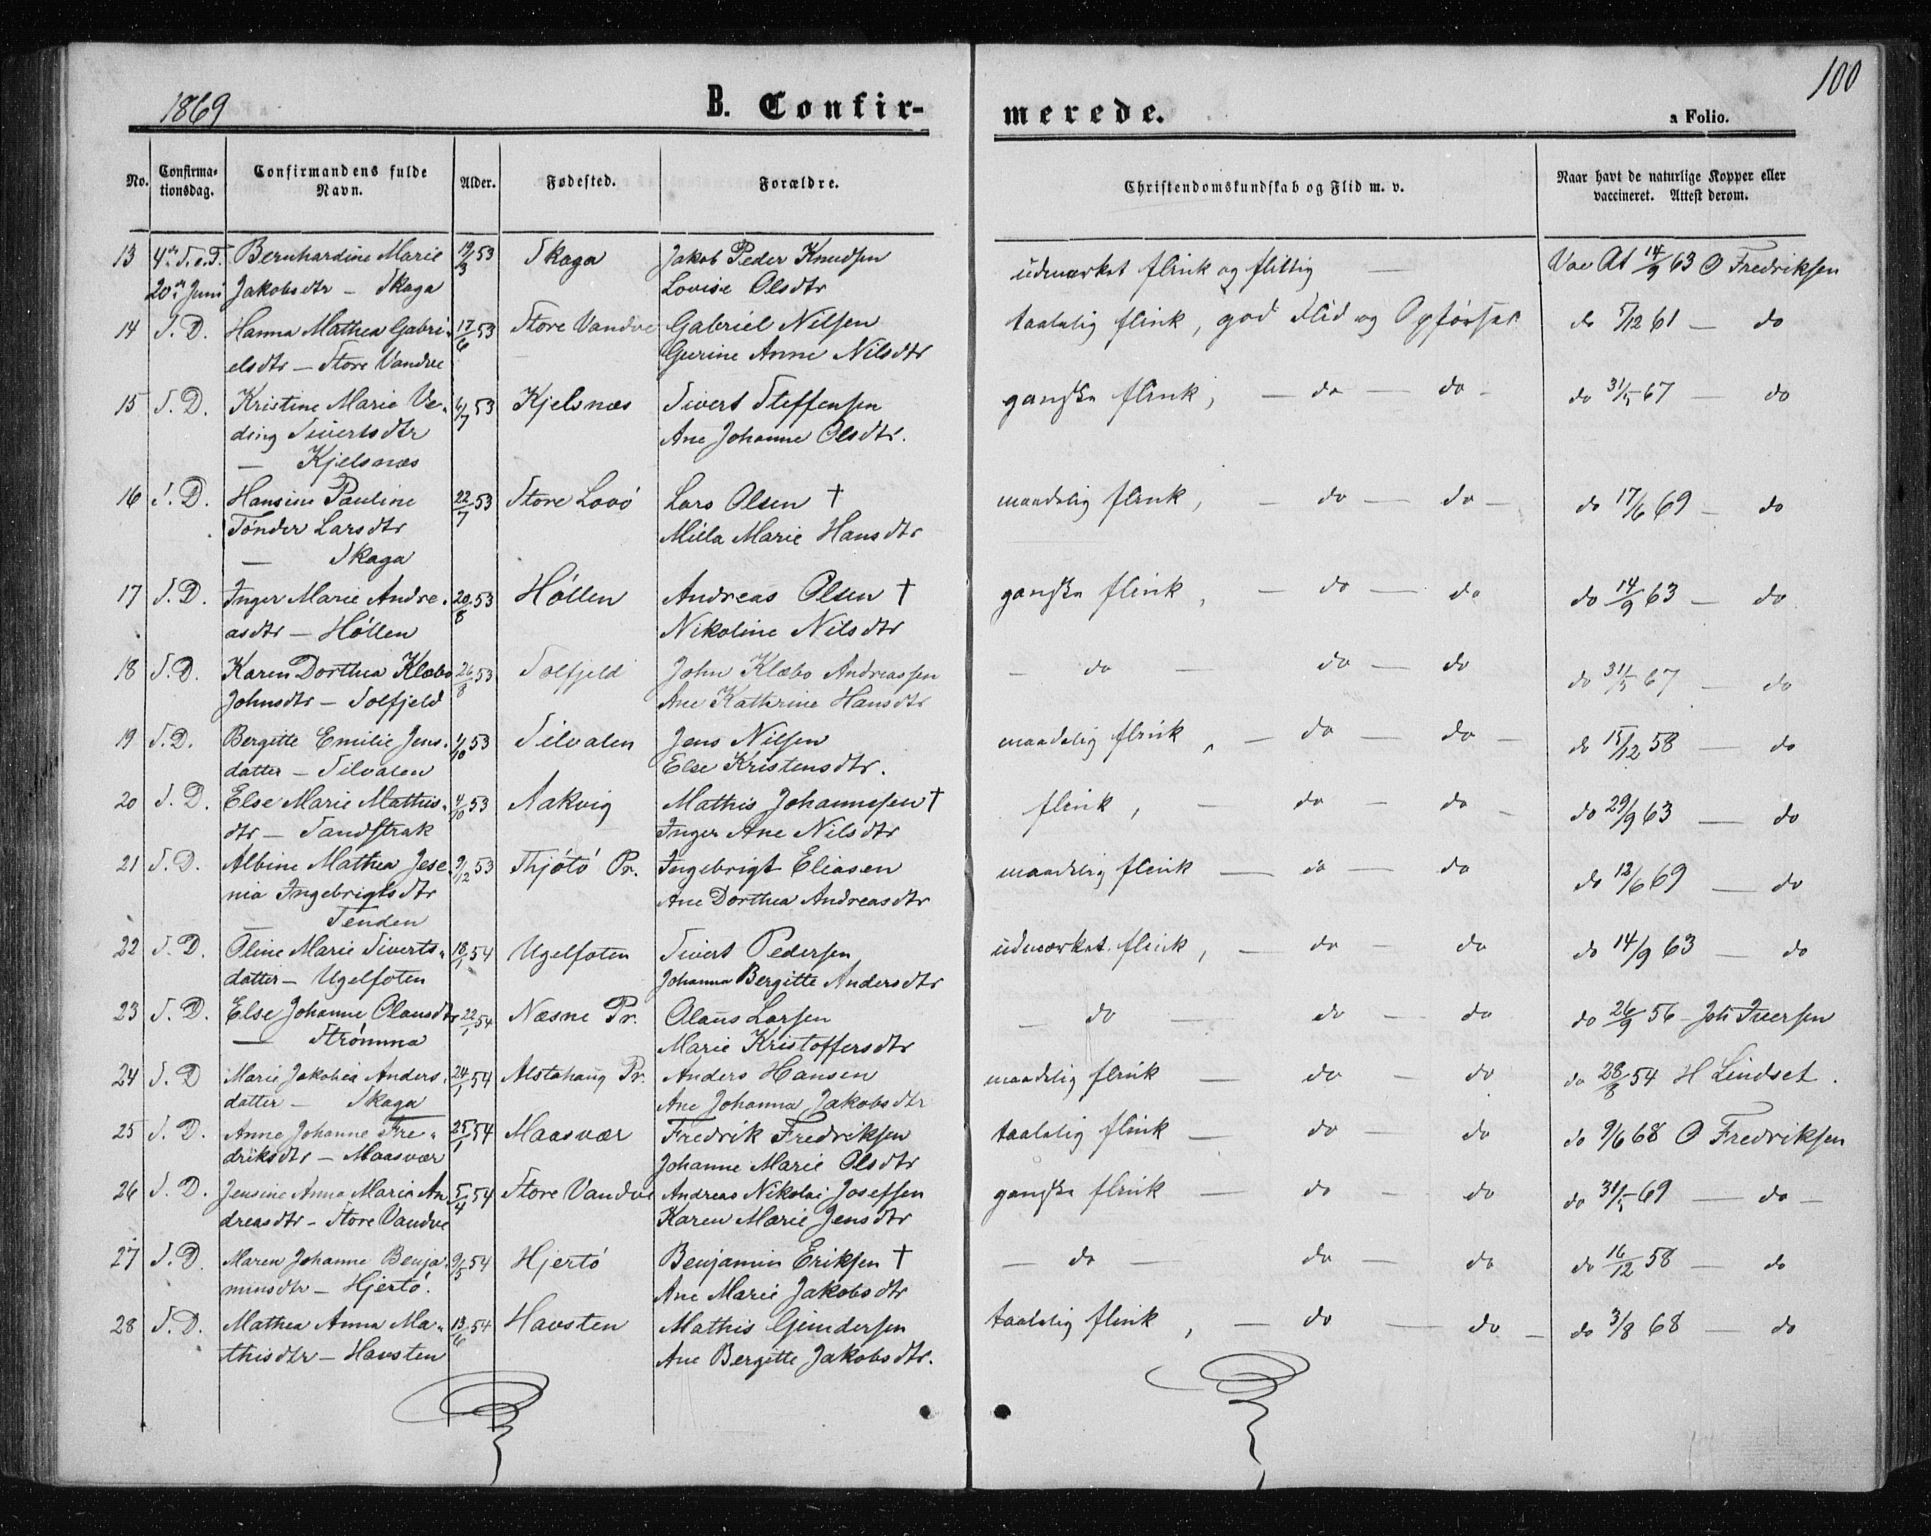 1869
B. Confir-
merede.
a Folio.
100
No.
Confirma-
tionsdag.
Confirmandens fulde
Navn.
Alder.
Fødested.
Forældre.
Christendomskundskab og Flid m. v.
Naar havt de naturlige Kopper eller
vaccineret. Attest derom.
13 4de S. e. T. Bernhardine Marie 19/3 53 Skaga Jakob Peder Knudsen udmærket flink og flittig — Vac At 14/9 63 O Fredriksen
20de Juni Jakobsdtr — Skaga Lovise Olsdtr
14 S. D. Hanna Mathea Gabri- 17/6 53 Store Vandve Gabriel Nilsen taalelig flink, god Flid og Opførsel do 5/12 61 — do
elsdtr — Store Vandve Gurine Anne Nilsdtr
15 S. D. Kristine Marie Ve- 6/7 53 Kjelsnæs Sivert Steffensen ganske flink, — do — do — do 31/5 67 — do
ding Sivertsdtr Ane Johanne Olsdtr.
— Kjelsnæs
16 S. D. Hansine Pauline 22/7 53 Store Lovö Lars Olsen † maadelig flink, — do — do — do 17/6 69 — do
Tønder Larsdtr Milla Marie Hansdtr
— Skaga
17 S. D. Inger Marie Andre- 20/8 53 Höllen Andreas Olsen † ganske flink, — do — do do 14/9 63 — do
asdtr — Höllen Nikoline Nilsdtr
18 S. D. Karen Dorthea Klæbo 26/8 53 Solfjeld John Klæbo Andreassen — do — do — do do 31/5 67 — do
Johnsdtr — Solfjeld Ane Kathrine Hansdtr
19 S. D. Bergitte Emilie Jens- 1/10 53 Silvalen Jens Nilsen maadelig flink, — do — do — do 15/12 58 — do
datter — Silvalen Else Kristensdtr.
20 S. D. Else Marie Mathis- 4/10 53 Aakvig Mathis Johannesen † flink, — do — do — do 29/9 63 — do
dtr — Sandstrak Inger Ane Nilsdtr
21 S. D. Albine Mathea Jese- 9/12 53 Thjötö Pr. Ingebrigt Eliasen maadelig flink — do — do do 13/6 69 — do
nia Ingebrigtsdtr Ane Dorthea Andreasdtr
— Tenden
22 S. D. Oline Marie Siverts- 18/1 54 Ugelfoten Sivert Pedersen udmærket flink, — do — do do 14/9 63 — do
datter — Ugelfoten Johanna Bergitte Andersdtr
23 S. D. Else Johanne Olausdtr 22/1 54 Næsne Pr. Olaus Larsen — do — do — do do 26/9 56 — Joh Iversen
— Strömma Marie Kristoffersdtr
24 S. D Marie Jakobea Anders- 24/1 54 Alstahaug Pr. Anders Hansen maadelig flink — do — do do 28/8 54 H Lindset.
datter — Skaga Ane Johanna Jakobsdtr
25 S. D. Anne Johanne Fre- 25/1 54 Maasvær Fredrik Fredriksen taalelig flink — do — do do 9/6 68 O Fredriksen
driksdtr — Maasvær Johanne Marie Olsdtr
26 S. D. Jensine Anna Marie An 5/4 54 Store Vandve Andreas Nikolai Josefsen ganske flink — do — do do 31/5 69 — do —
dreasdtr — Store Vandve Karen Marie Jensdtr
27 S. D. Maren Johanne Benja- 9/5 54 Hjertö Benjamin Eriksen † — do — do do do 16/12 58 — do
minsdtr — Hjertö. Ane Marie Jakobsdtr
28 S. D. Mathea Anna Ma- 13/6 54 Havsten Mathis Gundersen taalelig flink, — do — do — do 3/8 68 — do
thisdtr — Havsten Ane Bergitte Jakobsdtr.